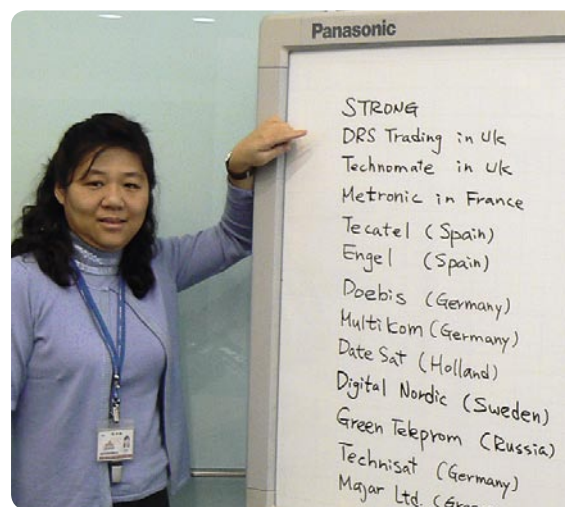 Panasonic
STRONG
DRS Trading in Uk
Technomate in Uk
Metronic in France
Tecatel (Spain)
Engel (Spain)
Doebis (Germany)
Multikom (Germany)
DateSat (Holland)
Digital Nordic (Sweden)
Green Teleprom (Russia)
Technisat (Germany)
Majar Ltd.